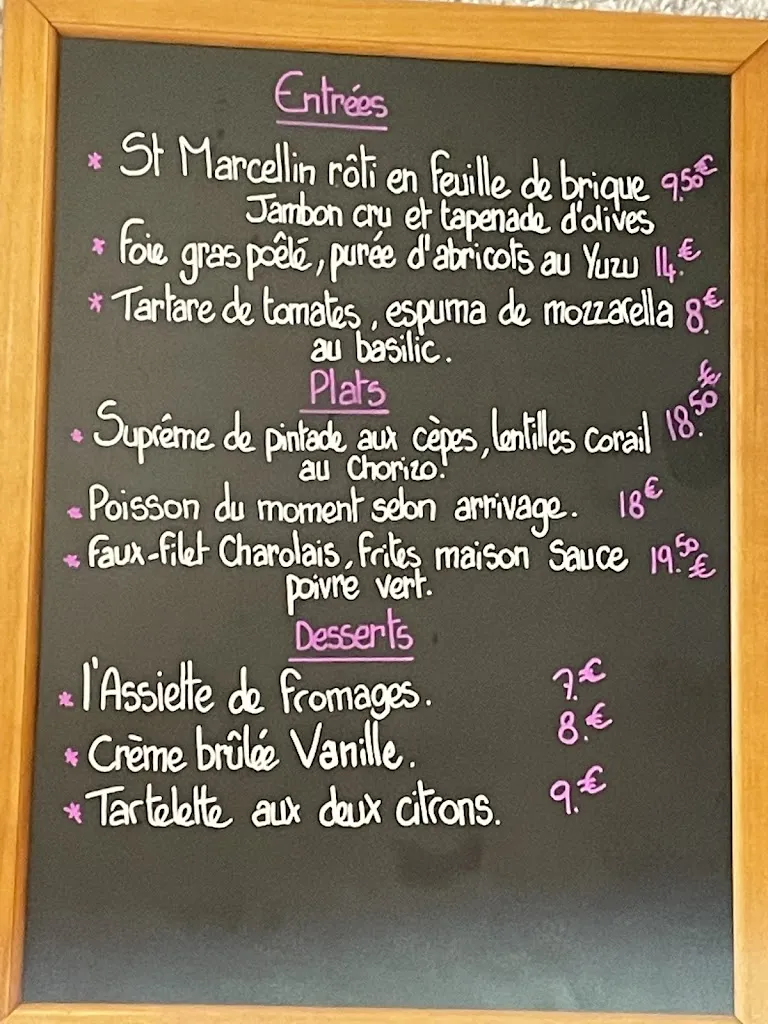 Entrées
* St Marcellin rôti en feuille de brique 9,50€
Jambon cru et tapenade d'olives
* Foie gras poêlé, purée d'abricots au Yuzu 14.€
* Tartare de tomates, espuma de mozzarella 8.€
au basilic.
Plats
* Suprême de pintade aux cèpes, lentilles corail 18.50€
au Chorizo.
* Poisson du moment selon arrivage. 18€
* Faux-filet Charolais, frites maison Sauce 19.50€
poivre vert.
Desserts
* l'Assiette de fromages. 7.€
* Crème brûlée Vanille. 8.€
* Tartelette aux deux citrons. 9.€